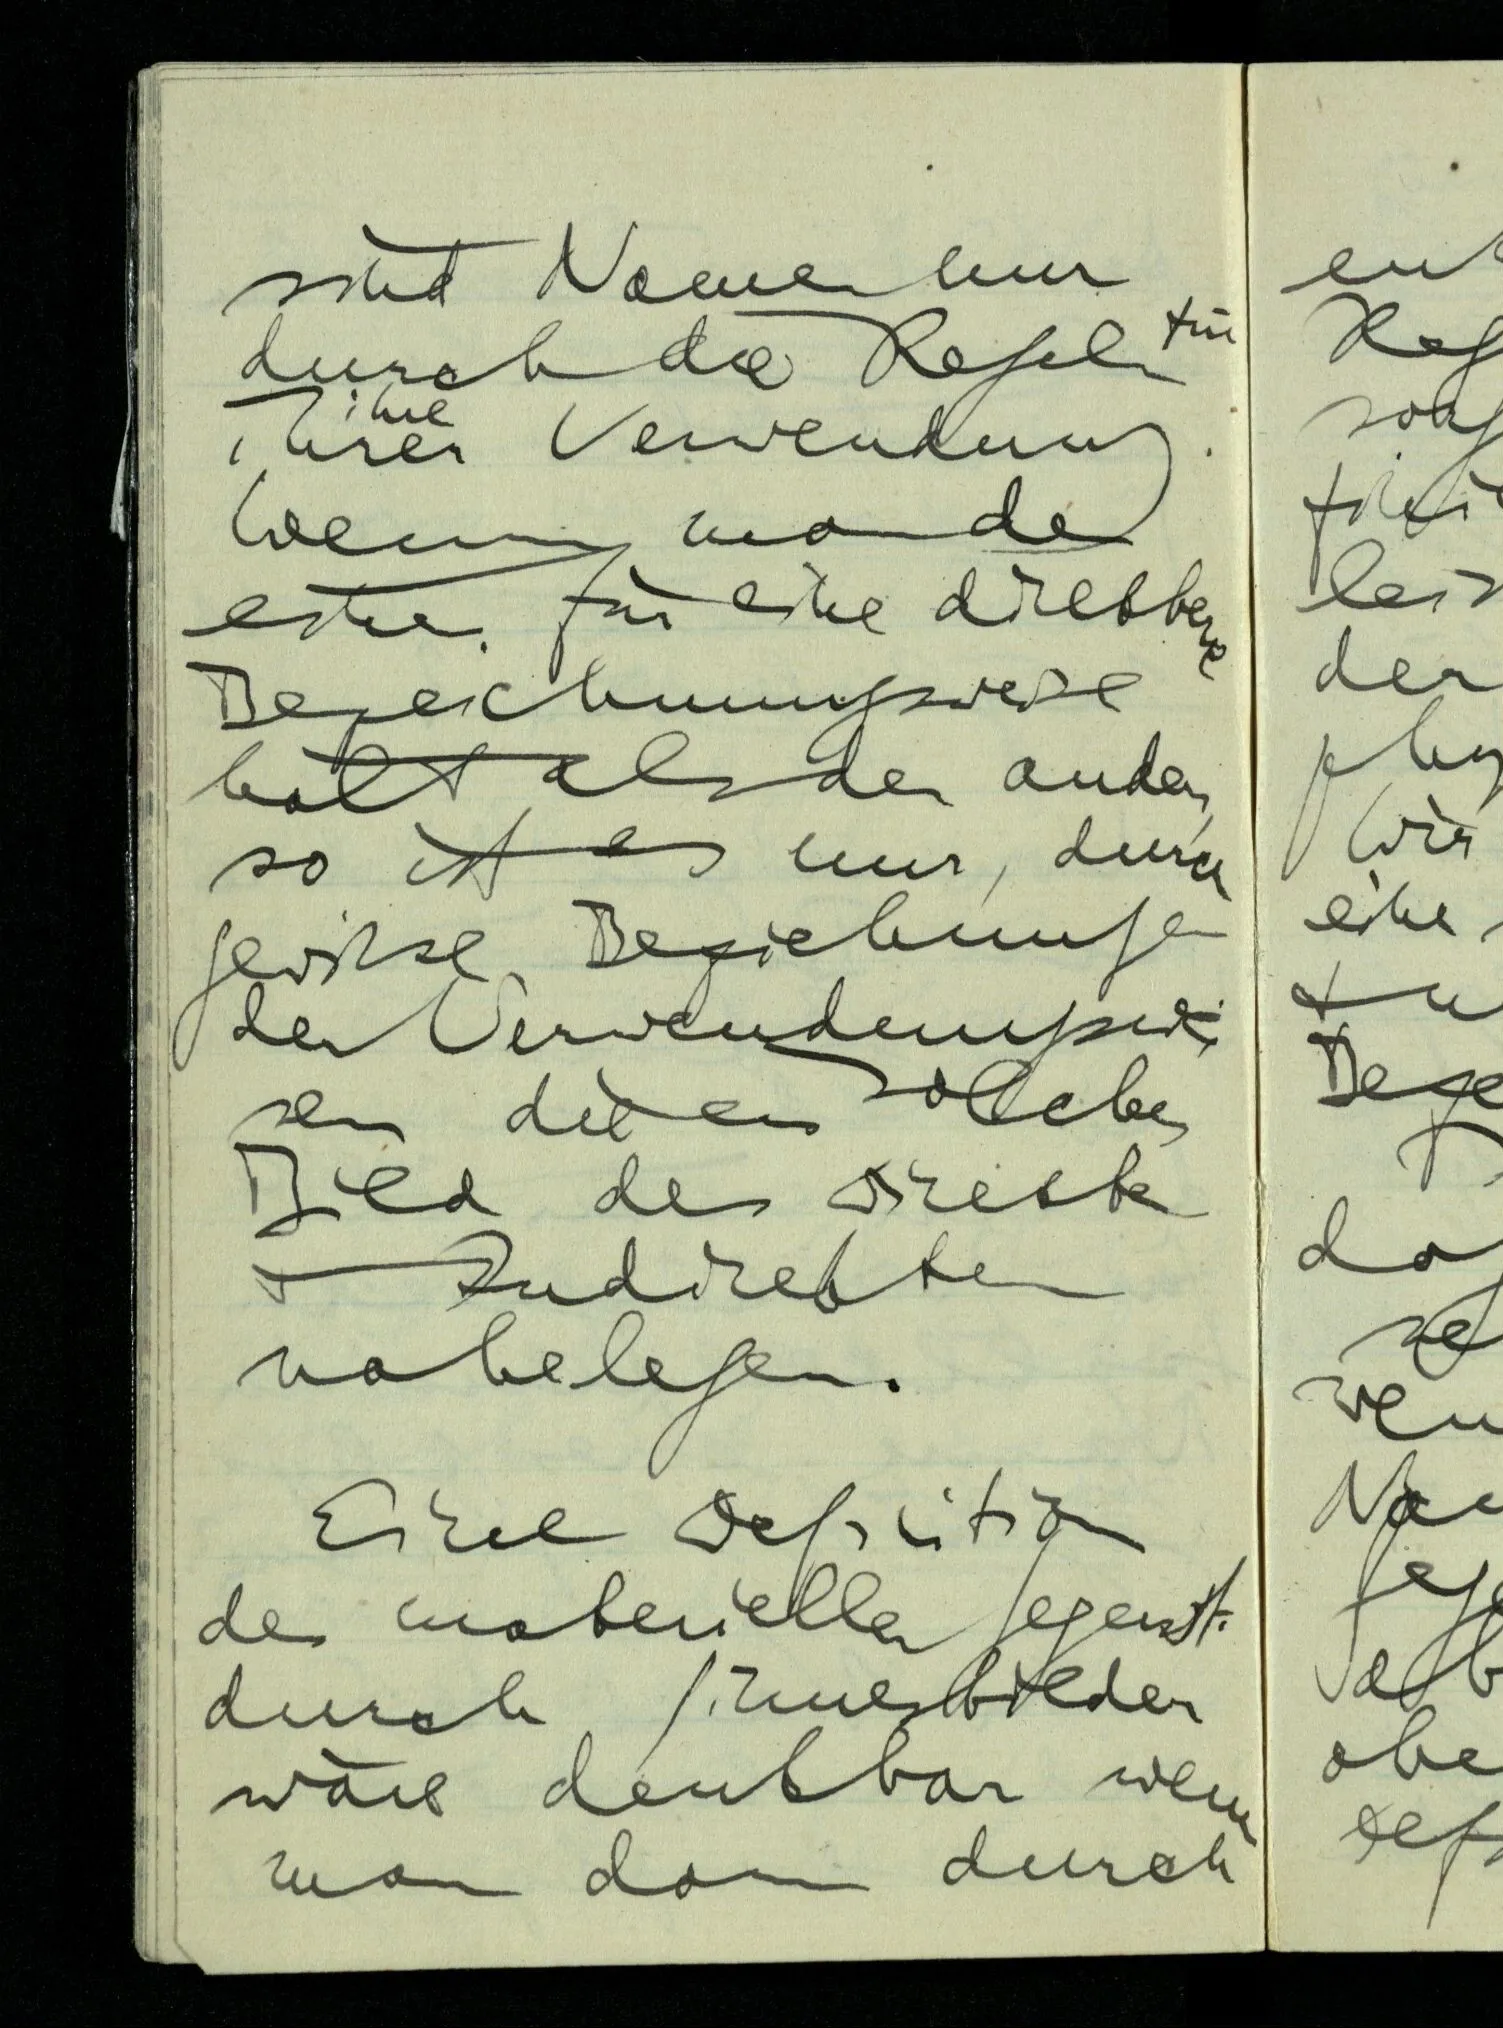 sind Namen nur
durch die Regeln für
ihre
ihrer Verwendung.
Wenn man den
einen für eine direktere
Bezeichnungsweise
hält als den andern,
so ist es nur, durch
gewisse Beziehungen
der Verwendungswei
sen die ein solches
Bild des direkten
+ Indirekten
nahelegen.
Eine Definition
des materiellen Gegenst.
durch Sinnesbilder
wäre denkbar wenn
man dann durch
wir
eine
der